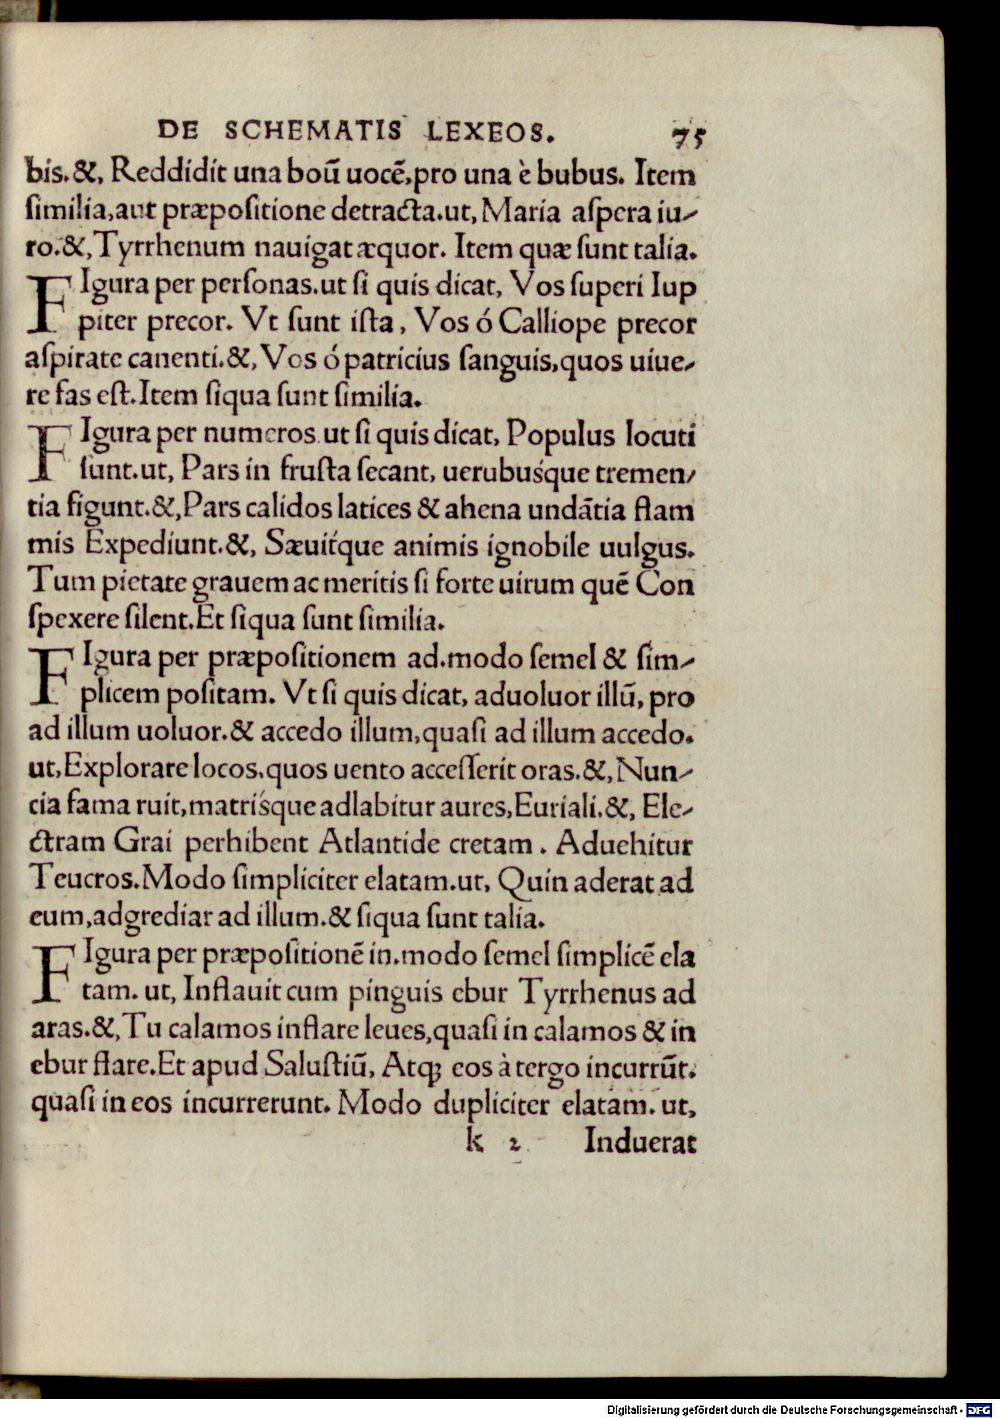 DE SCHEMATIS LEXEOS. 75
bis.&, Reddidit una boū uocē,pro una è bubus. Item
ſimilia,aut præpoſitione detracta.ut, Maria aſpera iu⸗
ro.&,Tyrrhenum nauigat æquor. Item quæ ſunt talia.
FIgura per perſonas.ut ſi quis dicat, Vos ſuperi Iup
piter precor. Vt ſunt iſta, Vos ó Calliope precor
aſpirate canenti.&, Vos ó patricius ſanguis,quos uiue⸗
re fas eſt.Item ſiqua ſunt ſimilia.
FIgura per numeros.ut ſi quis dicat, Populus locuti
ſunt.ut, Pars in fruſta ſecant, uerubuśque tremen⸗
tia figunt.&,Pars calidos latices & ahena undātia flam
mis Expediunt.&, Sæuit́que animis ignobile uulgus.
Tum pietate grauem ac meritis ſi forte uirum quē Con
ſpexere ſilent.Et ſiqua ſunt ſimilia.
FIgura per præpoſitionem ad.modo ſemel & ſim⸗
plicem poſitam. Vt ſi quis dicat, aduoluor illū, pro
ad illum uoluor.& accedo illum,quaſi ad illum accedo.
ut,Explorare locos,quos uento acceſſerit oras.&,Nun⸗
cia fama ruit,matriśque adlabitur aures,Euriali.&, Ele⸗
ctram Grai perhibent Atlantide cretam. Aduehitur
Teucros.Modo ſimpliciter elatam.ut, Quin aderat ad
eum,adgrediar ad illum.& ſiqua ſunt talia.
FIgura per præpoſitionē in.modo ſemel ſimplicē ela
tam. ut, Inflauit cum pinguis ebur Tyrrhenus ad
aras.&,Tu calamos inflare leues,quaſi in calamos & in
ebur flare.Et apud Saluſtiū, Atq; eos à tergo incurrūt.
quaſi in eos incurrerunt. Modo dupliciter elatam. ut,
k 2 Induerat
Digitalisierung gefördert durch die Deutsche Forschungsgemeinschaft - DFG